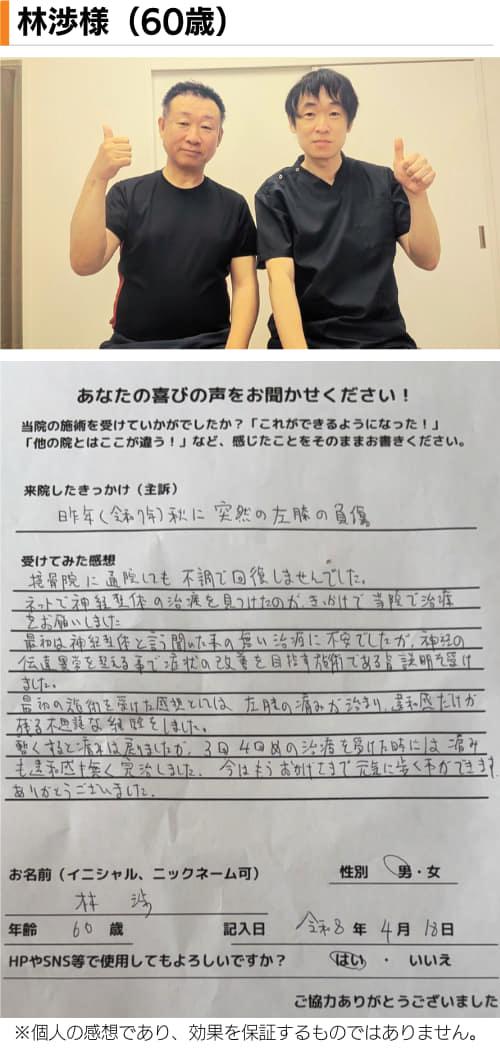 林渉様（60歳）
あなたの喜びの声をお聞かせください！
当院の施術を受けていかがでしたか？「これができるようになった！」
「他の院とはここが違う！」など、感じたことをそのままお書きください。
来院したきっかけ（主訴）
昨年（令和7年）秋に 突然の左膝の負傷
受けてみた感想
接骨院に通院しても不調で回復しませんでした。
ネットで神経整体の治療を見つけたのが、きっかけで当院で治療
をお願いしました
最初は神経整体と言う聞いた事の無い治療に不安でしたが、神経の
伝達異常を整える事で症状の改善を目指す施術である旨説明を受け
ました。
最初の施術を受けた感想としては、左膝の痛みが治まり、違和感だけが
残る不思議な経験をしました。
暫くすると痛みは戻りましたが、3回4回めの治療を受けた時には痛み
も違和感も無く完治しました。今はもうおかげさまで元気に歩く事ができます。
ありがとうございました。
お名前（イニシャル、ニックネーム可） 性別 男・女
林 渉
年齢 60 歳 記入日 令和8年 4月 18日
HPやSNS等で使用してもよろしいですか？ はい ・ いいえ
ご協力ありがとうございました
※個人の感想であり、効果を保証するものではありません。